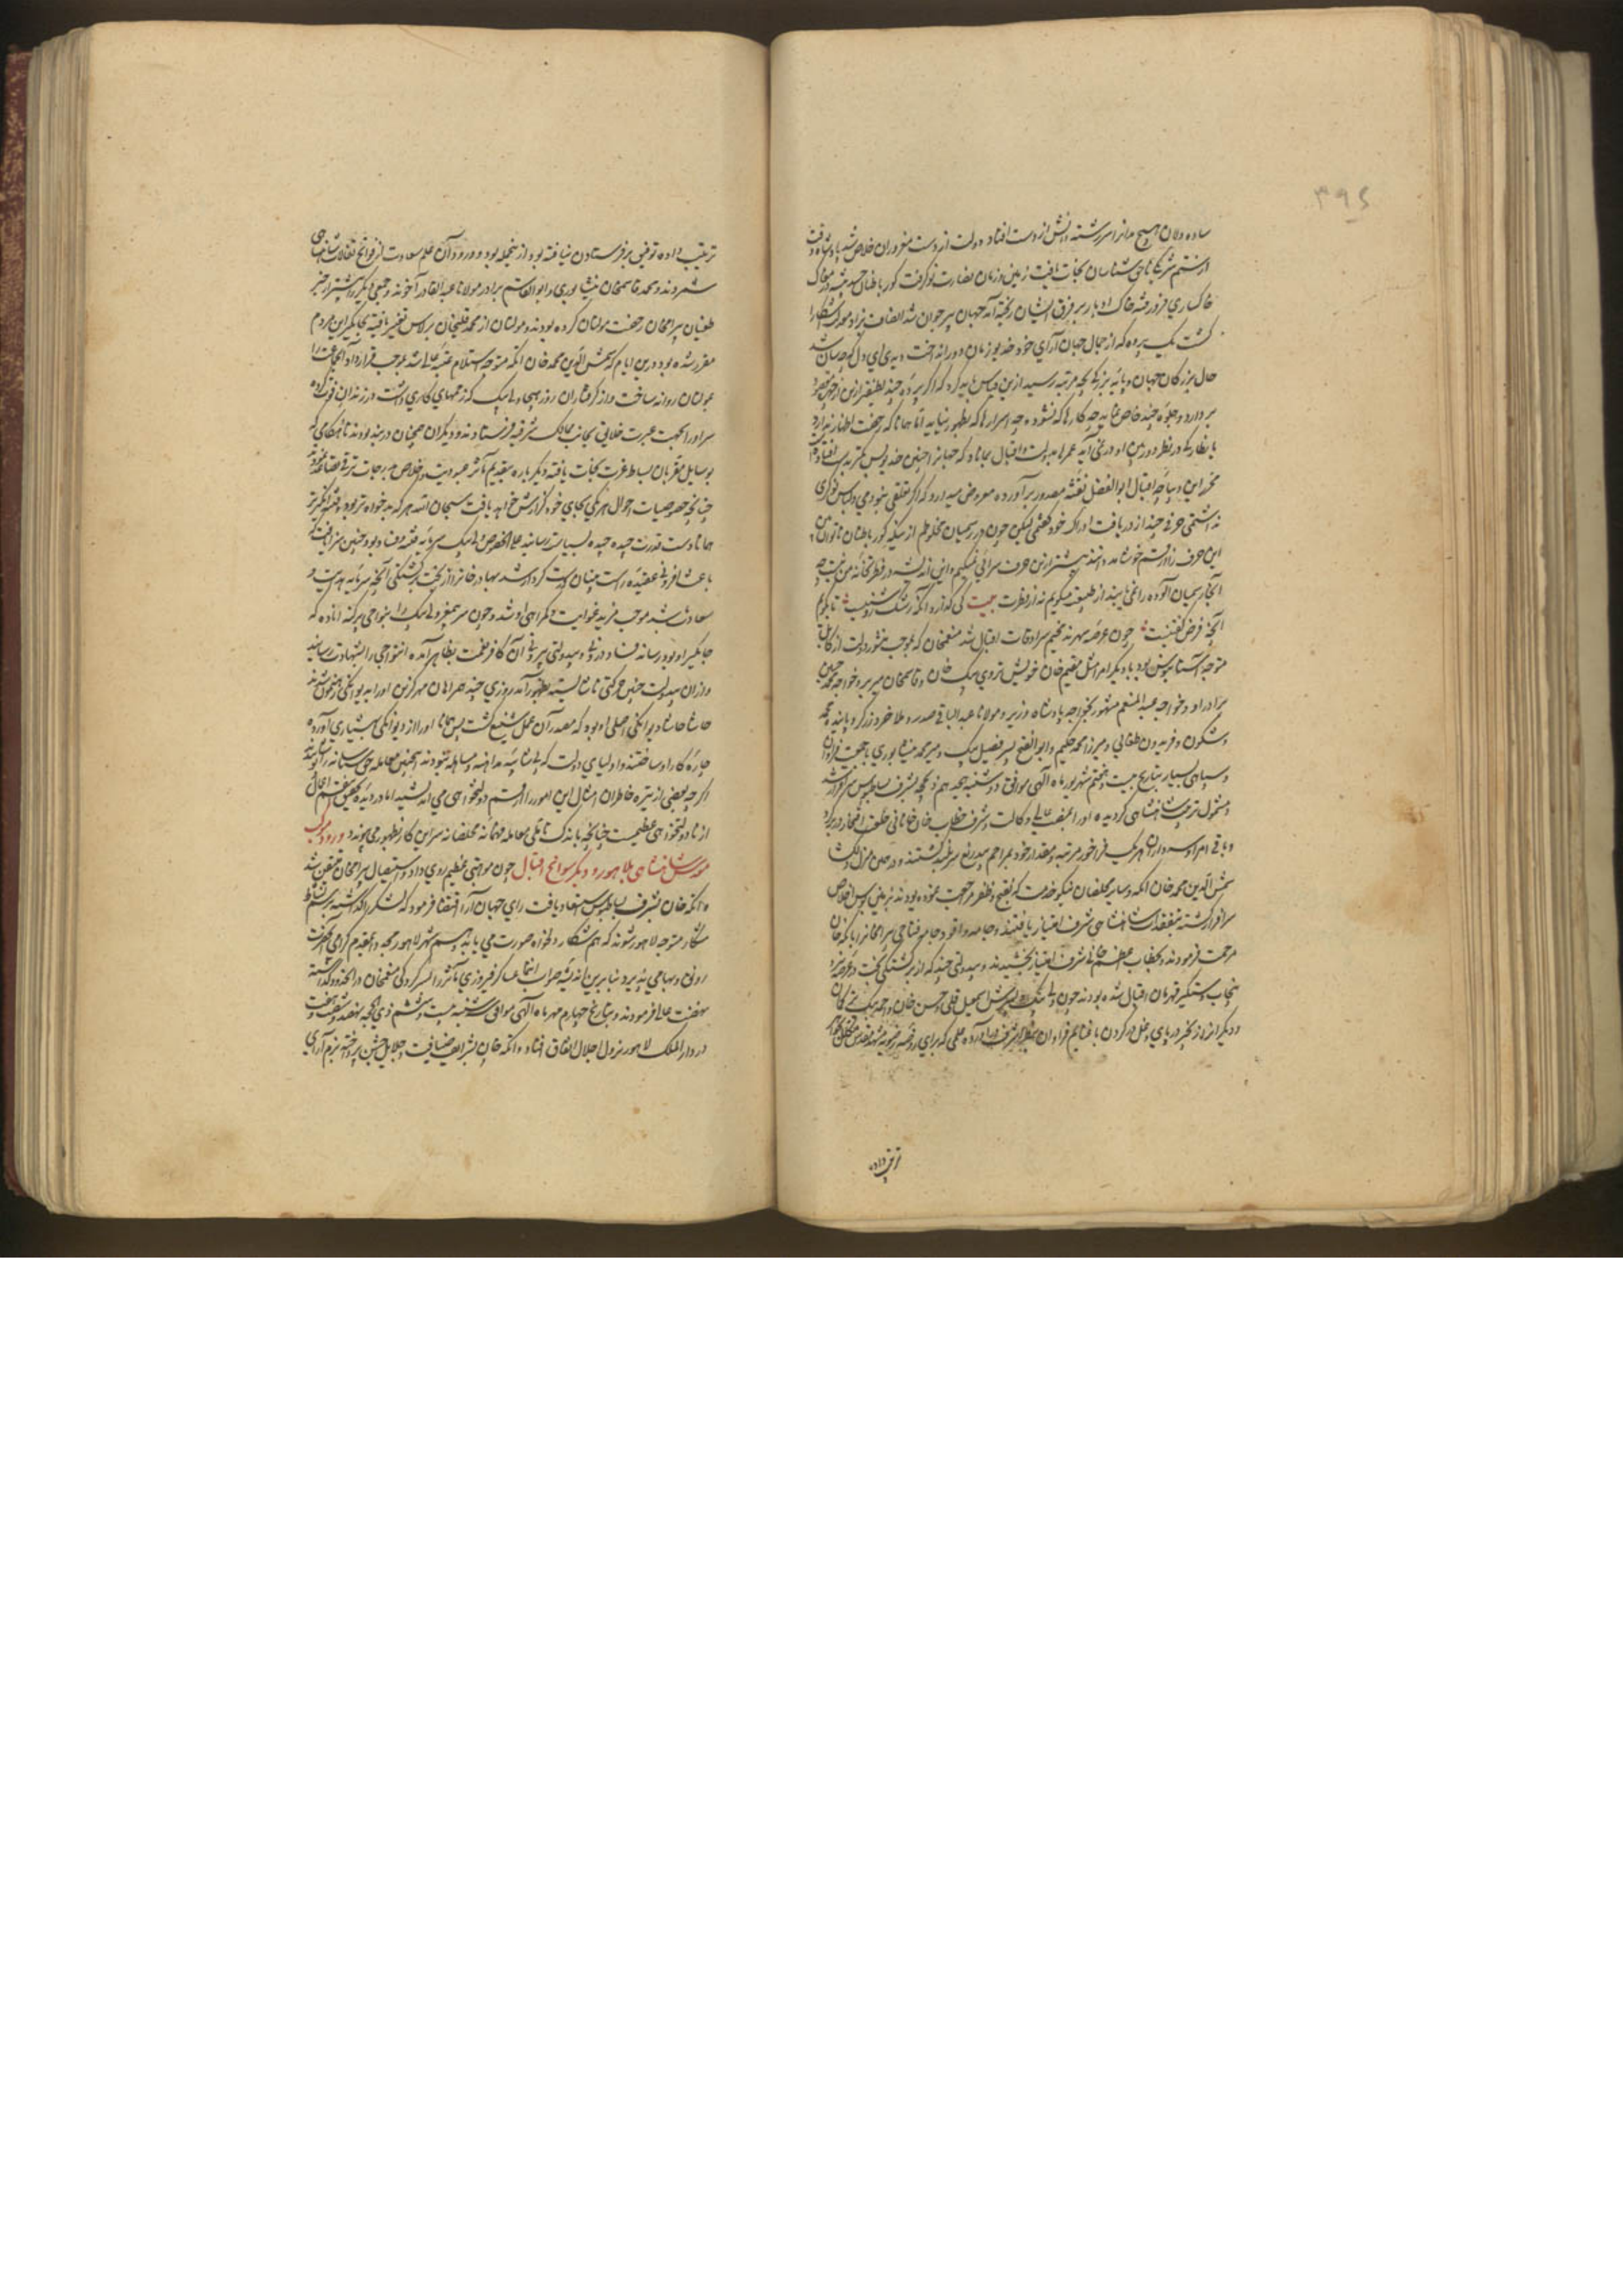 ۳۹۵
ساده دلان هیچ مدانرا سررشته دانش از دست افتاد دولت از دست مغروران خلاص شد
از ستم شریکی ناحق شناسان نجات یافت زمین و زمان نضارت نو گرفت کور باطنان حسد پیشه در مغاک
خاکساری فرو رفته خاک ادبار بر فرق ایشان ریخته آمد جهان پیر جوان شد انصاف نژاد
گشت یک پرده که از جمال جهان آرای خود خدیو زمان دور انداخت
حال بزرگان جهان و پایه بزرگیها بچه مرتبه رسید ازین قیاس باید کرد که اگر پرده چند لطیفتر ازین از چهره
بردارد و جلوه چند خاص نماید چه کارها که نشود و چه اسرارها که بظهور نیاید اما همانا که رخصت اظهار ندارد
یا نظارگی در نظر دوربین او در نمی آید عمرها بدولت و اقبال بماناد که جهانرا چنین خدیو
محرر این دیباچه اقبال ابوالفضل نفثه مصدور برآورده معروض میدارد که اگر تعلقی نبودمی و لباس نوکری
نداشتمی حرفی چند از دریافت ادراک خود گفتمی لیکن چون در رسمیان مخلوطم از میکده کور باطنان
این حرف را از قسم خوشامد دانند بیشتر ازین حرف سرائی نمیکنم و این اندیشه در فطرتخانه من نیست
آنجا رسمیان آلوده را نمی یابند از طبیعت میگویم نه از فطرت بیت کی گذارد آنکه رشک روشنیست تا بگویم
آنچه فرض گفتنیست چون عرصه سهرند مخیم سرادقات اقبال شد منعمخان که بموجب منشور دولت از کابل
متوجه آستانبوس بود با دیگر امرا مثل مقیم خان خویش تردی بیک خان و قاسمخان میربر و خواجه محمد حسین
برادر او و خواجه عبدالمنعم مشهور بخواجه پادشاه وزیر و مولانا عبدالباقی صدر و ملا خرد زرگر و پاینده محمد
و شگون و فریدون طغائی و میرزا محمد حکیم و ابوالفتح پسر فضیل بیک و میر محمد نیشابوری با جمعیت فراوان
و سپاهی بسیار بتاریخ بیست و هفتم شهریور ماه الهی موافق دوشنبه هجدهم ذیحجه بشرف بساطبوس سرافراز شد
و مشمول تربیت شاهنشاهی گردیده او را بمنصب عالی وکالت و شرف خطاب خان خانانی و خلعت افتخار
و باقی امرا و سرداران هر یک فراخور مرتبه و مقدار خود بمراحم بیدریغ سربلند گشتند و در همین منزل دلگشا
شمس الدین محمد خان اتکه و سایر مخلصان نیکو خدمت که بفتح و ظفر مراجعت نموده بودند بزمین بوس اخلاص
سرافراز گشته بتفقدات شاهنشاهی شرف امتیاز یافتند و جامه وافو و جامه فتاحی بیرامخان را باتکه خان
مرحمت فرمودند و بخطاب اعظم خانی شرف امتیاز بخشیدند و بیدولتی چند که از برگشتگی بخت در عرصه
پنجاب دستگیر قهرمان اقبال شده بودند چون ولی بیک و پسرش اسمعیل قلی و حسین خان و احمد بیک ترکمان
و دیگران را زنجیر در پای و غل در گردن با غنایم فراوان بنظر اشرف درآورده علمی که برای روضه رضویه مشهد مقدس
ترتیب داده
ترتیب داده توفیق بر فرستادن نیافته بود از نجمله بود و ورود آن علم سعادت از فواتح تفالات شاهنشاهی
شمردند و محمد قاسمخان نیشابوری و ابوالقاسم برادر مولانا عبدالقادر آخوند و جمعی دیگر را پیشتر از خبر
طغیان بیرامخان رخصت مولتان کرده بودند و مولتان از محمد قلیخان برلاس تغیر یافته بجاگیر این مردم
مقرر شده بود درین ایام که شمس الدین محمد خان اتکه متوجه استلام عتبه عالی شد بموجب قرارداد آنجماعت را
بمولتان روانه ساخت و از گرفتاران روز هیجا ولی بیک که زخمهای کاری داشت در زندان فوت کرد
سر او را بجهت عبرت خلایق بجانب ممالک شرقیه فرستادند و دیگران همچنان در بند بودند تا هنگامی که
بوسایل مقربان بساط عزت نجات یافته دیگر باره بتقدیم مآثر عبودیت و اخلاص بدرجات ترقی تصاعد نمودند
چنانچه خصوصیات احوال هر یکی بجای خود گزارش خواهد یافت سبحان الله هر که بدخواه تر بود و فتنه انگیزتر
همانا دست قدرت چیده چیده بسیاست رسانید علی الخصوص ولی بیک سرمایه فتنه و فساد بود چنین سزا یافت
باعث افزونی عقیده راست بینان درست کردار شد بهادر خانرا از بخت برگشتگی آنچه سرمایه هدایت و
سعادت باشد موجب مزید غوایت و گمراهی او شد و چون سر بیمغز ولی بیک را بنواحی پرگنه اتاوه که
جاگیر او بود رسانند فساد درونی و بیدولتی بیرونی آن کافر نعمت بظاهر آمده آن تواچی را بشهادت رسانید
و از آن بیدولت چنین حرکتی ناشایسته بظهور آمد روزی چند همراهان مهرگزین او را بدیوانگی رهنمون شدند
حاشا حاشا دیوانگی اصلی او بود که مصدر آن عمل شنیع گشت پس همانا او را از دیوانگی بهشیاری آورده
چاره گار او ساختند و اولیای دولت که بی شائبه مداهنه و مساهله نبودند اینچنین معامله حق ستانه را پوشانیدند
اگرچه بعضی از تیره خاطران امثال این امور را از قسم دولتخواهی می اندیشیدند اما در دیده تحقیق سقیم اعمال
از نادولتخواهی عظیمست چنانچه باندک تاملی معامله فهمانه مخلصانه سر این کار بظهور می پیوندد ورود موکب
شاهنشاهی بلاهور و دیگر سوانح اقبال چون مواهبی عظیم روی داد و استیصال بیرامخان متیقن شد
و اتکه خان بشرف بساطبوس استسعاد یافت رای جهان آرا اقتضا فرمود که لشکر را گذاشته برسم نشاط
شکار متوجه لاهور شوند که هم شکار دلخواه صورت می یابد و هم شهر لاهور مجددا بمقدم گرامی آنحضرت
رونق و بهای می پذیرد بنابرین اندیشه صواب انتما عساکر فیروزی مآثر را بسرکردگی منعمخان در آنحدود گذاشته
نهضت عالی فرمودند و بتاریخ چهارم مهر ماه الهی موافق سه شنبه بیست و ششم ذی الحجه نهصد و شصت و هفت
در دارالملک لاهور نزول اجلال اتفاق افتاد و اتکه خان بشرایف ضیافت و جلایل جشن پرداخته بزم آرای